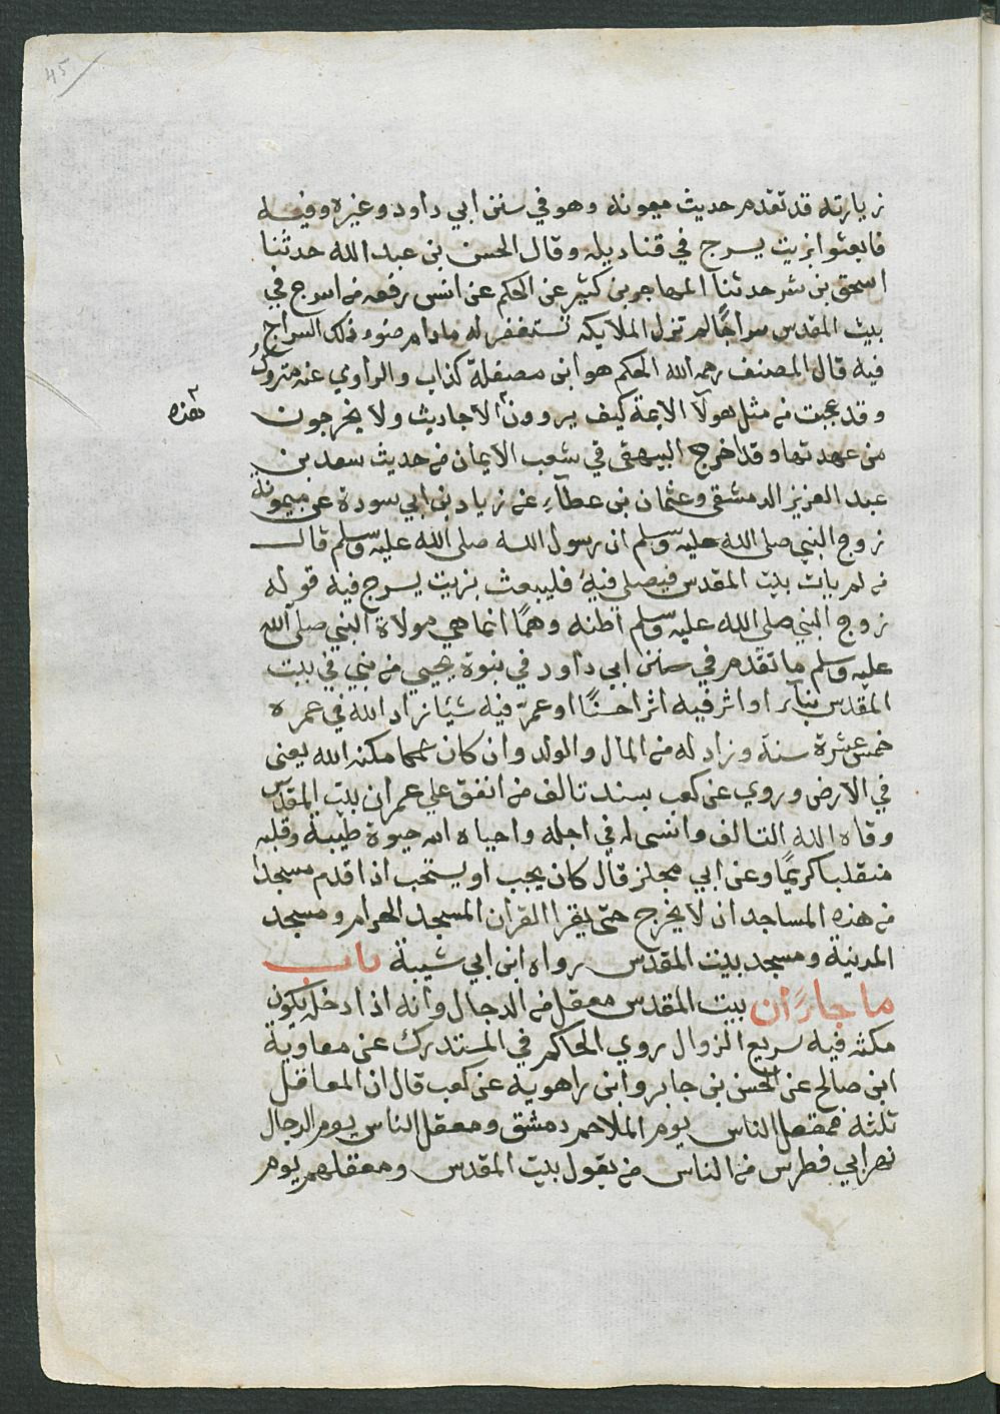 45
زيارته قد تقدم حديث ميمونه وهو في سنن ابي داود وغيره وفيه
فابعثوا بزيت يسرج في قناديله وقال الحسن بن عبد الله حدثنا
اسحق بن بشر حدثنا المهاجر بن كثير عن الحكم عن انس رفعه من اسرج في
بيت المقدس سراجًا لم تزل الملايكه تستغفر له ما دام ضوء ذلك السراج
فيه قال المصنف رحمه الله الحكم هو ابن مصقلة كذاب والراوي عنه متروك
وقد عجبت من مثل هولآ الايمة كيف يروون الاحاديث ولا يخرجون
هذه
من عهدتها وقد اخرج البيهقي في شعب الايمان من حديث سعد بن
عبد العزيز الدمشقي وعثمان بن عطآء عن زياد بن ابي سودة عن ميمونة
زوج النبي صلى الله عليه وسلم ان رسول الله صلى الله عليه وسلم قال
من لم يات بيت المقدس فيصلي فيه فليبعث بزيت يسرج فيه قوله
زوج النبي صلى الله عليه وسلم اظنه وهمًا انما هي مولاة النبي صلى الله
عليه وسلم ما تقدم في سنن ابي داود في بنوة يحيي من بني في بيت
المقدس بناء او اثر فيه اثرا حسنًا او عمّر فيه شيئا زاد الله في عمره
خمس عشرة سنة وزاد له من المال والولد وان كان مما مكنه الله يعني
في الارض وروي عن كعب بسند تالف من انفق علي عمران بيت المقدس
وقاه الله التالف وانسى له في اجله واحياه الله حيوة طيبة وقلبه
منقلبا كريمًا وعن ابي مجلز قال كان يجب او يستحب اذا قدم مسجدا
من هذه المساجد ان لا يخرج حتى يقرا القران المسجد الحرام ومسجد
المدينة ومسجد بيت المقدس رواه ابن ابي شيبة باب
ما جاء ان بيت المقدس معقل من الدجال وانه اذا دخله يكون
مكثه فيه سريع الزوال روي الحاكم في المستدرك عن معاوية
ابن صالح عن الحسن بن جابر وابن راهوية عن كعب قال ان المعاقل
ثلثه فمعقل الناس يوم الملاحم دمشق ومعقل الناس يوم الدجال
نهر ابي فطرس من الناس من يقول بيت المقدس ومعقلهم يوم